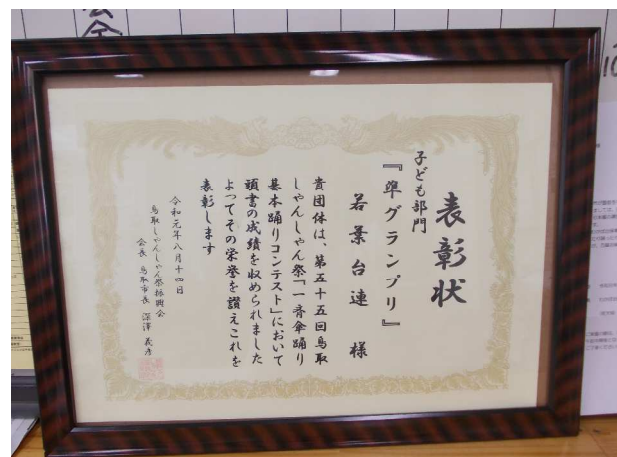 表彰状
子ども部門
『準グランプリ』
若葉台連 様
貴団体は、第五十五回鳥取
しゃんしゃん祭「一斉傘踊り
基本踊りコンテスト」において
頭書の成績を収められました
よってその栄誉を讃えこれを
表彰します
令和元年八月十四日
鳥取しゃんしゃん祭振興会
会長 鳥取市長 深澤 義彦